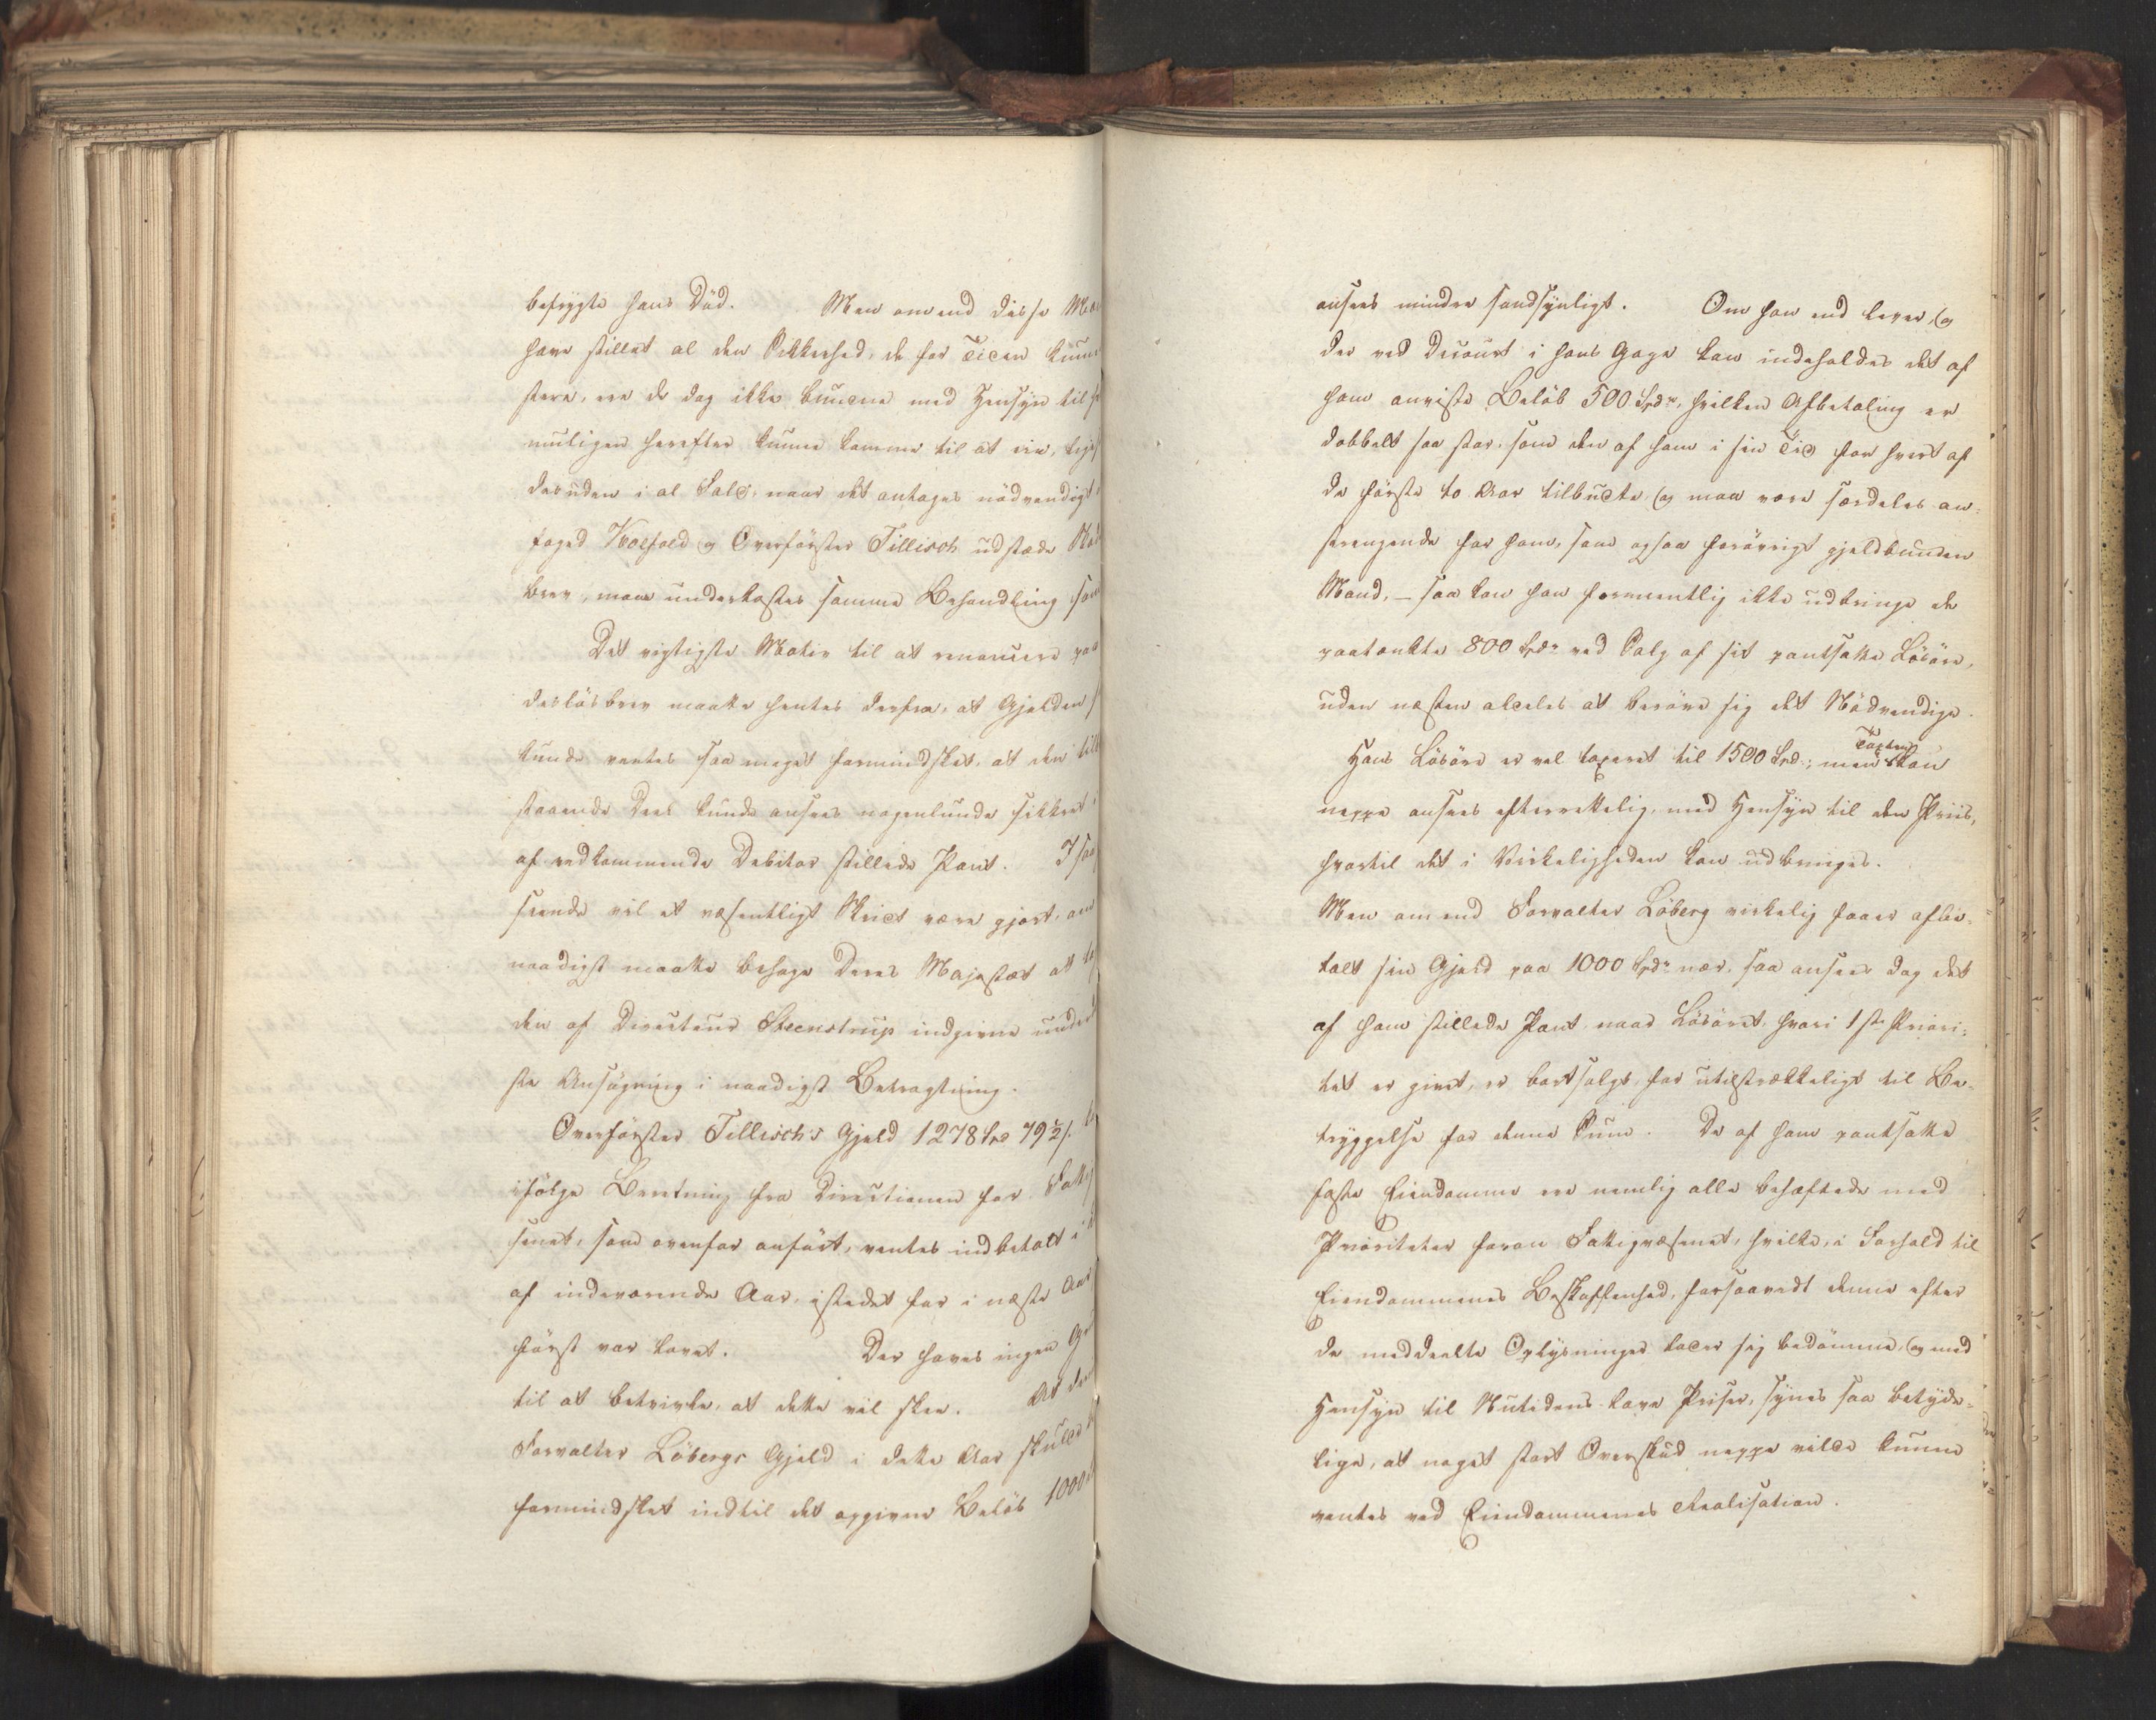 befrygte hans Död. Men om end disse
have stillet al den Sikkerhed, de for Tiden kunne
stere, ere de dog ikke bundne med Hensyn til
muligen herefter kunne komme til at eie,
desuden i al Fald, naar det antages nödvendigt,
foged Kolfald og Overförster Tillisch udstæde
brev, maa underkastes samme Behandling som
Det vigtigste Motiv til at renoncere paa
deslösbrev maatte hentes derfra, at Gjelden
kunde ventes saa meget formindsket, at den
staaende Deel kunde ansees nogenlunde sikkret
af vedkommende Debitor stillede Pant. I saa
seende vil et væsentligt Skridt være gjort, om
naadigst maatte behage Deres Majestæt at
den af Directeur Steenstrup indgivne under
ste Ansögning i naadigst Betragtning.
Overförster Tillisch's Gjeld 1278 Spd 79½ s.
ifölge Beretning fra Directionen for
senet, som ovenfor anfört, ventes indbetalt i
af indeværende Aar, istedet for i næste Aar
först var lovet. Der haves ingen
til at betvivle, at dette vil skee. At den
Forvalter Löbergs Gjeld i dette Aar skulde
formindsket indtil det opgivne Belöb 1000
ansees mindre sandsynligt. Om han end lever, og
der ved Decourt i hans Gage kan indeholdes det af
ham anviste Belöb 500 Spdr, hvilken Afbetaling er
dobbelt saa stor, som den af ham i sin Tid for hvert af
de förste to Aar tilbudte, og maa være særdeles an-
strengende for ham, som ogsaa forövrigt gjeldbunden
Mand, – saa kan han formentlig ikke udbringe de
paatænkte 800 Spdr ved Salg af sit pantsatte Lösöre,
uden næsten aldeles at beröve sig det Nödvendige.
Hans Lösöre er vel taxeret til 1500 Spd.; men Taxten kan
neppe ansees efterrettelig, med Hensyn til den Priis,
hvortil det i Virkeligheden kan udbringes.
Men om end Forvalter Löberg virkelig faaer afbe-
talt sin Gjeld paa 1000 Spdr nær, saa ansees dog det
af ham stillede Pant, naar Lösöret, hvori 1ste Priori-
tet er givet, er bortsolgt, for utilstrækkeligt til Be-
tryggelse for denne Sum. De af ham pantsatte
faste Eiendomme ere nemlig alle behæftede med
Prioriteter foran Fattigvæsenet, hvilke, i Forhold til
Eiendommenes Beskaffenhed, forsaavidt denne efter
de meddeelte Oplysninger lader sig bedömme, og med
Hensyn til Nutidens lave Priser, synes saa betyde-
lige, at noget stort Overskud neppe vilde kunne
ventes ved Eiendommenes Realisation.